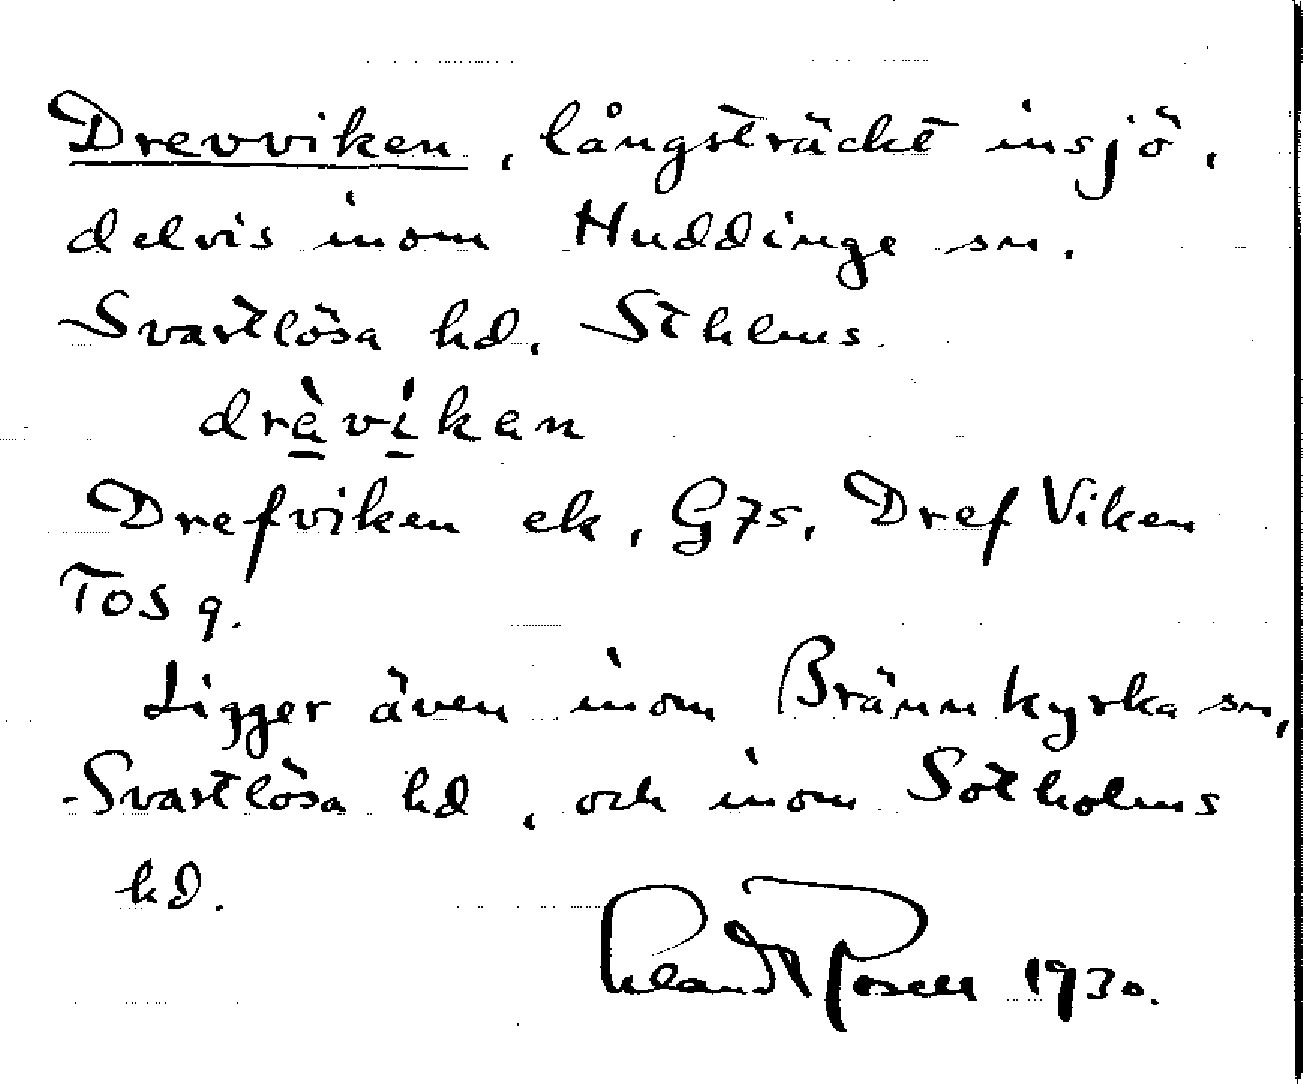 Drevviken, långsträckt insjö,
delvis inom Huddinge sn.
Svartlösa hd, Sthlms.
dràvíkan
Drefviken ek, G75, Dref Viken
TOS 9.
Ligger även inom Brännkyrka sn,
Svartlösa hd, och inom Sotholms
hd.
1930.